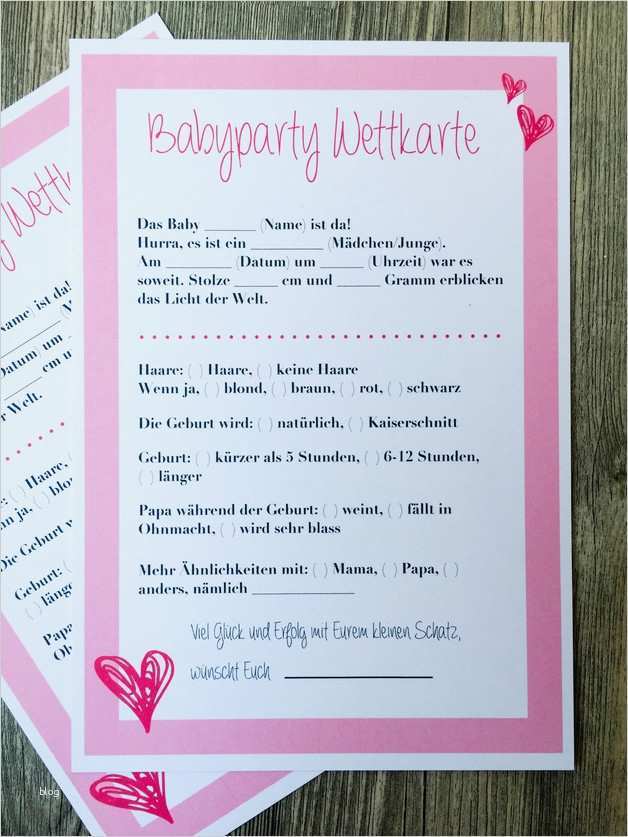 Babyparty Wettkarte
Das Baby _______ (Name) ist da!
Hurra, es ist ein __________ (Mädchen/Junge).
Am _________ (Datum) um ______ (Uhrzeit) war es
soweit. Stolze ______ cm und ______ Gramm erblicken
das Licht der Welt.
Haare: ( ) Haare, ( ) keine Haare
Wenn ja, ( ) blond, ( ) braun, ( ) rot, ( ) schwarz
Die Geburt wird: ( ) natürlich, ( ) Kaiserschnitt
Geburt: ( ) kürzer als 5 Stunden, ( ) 6-12 Stunden,
( ) länger
Papa während der Geburt: ( ) weint, ( ) fällt in
Ohnmacht, ( ) wird sehr blass
Mehr Ähnlichkeiten mit: ( ) Mama, ( ) Papa, ( )
anders, nämlich ______________
Viel Glück und Erfolg mit Eurem kleinen Schatz,
wünscht Euch ______________
Name) ist da!
Datum) um
cm u
r Welt.
Haare,
nn ja, ( ) blo
Die Geburt w
Geburt: (
( ) länge
Papa
Oh
blog